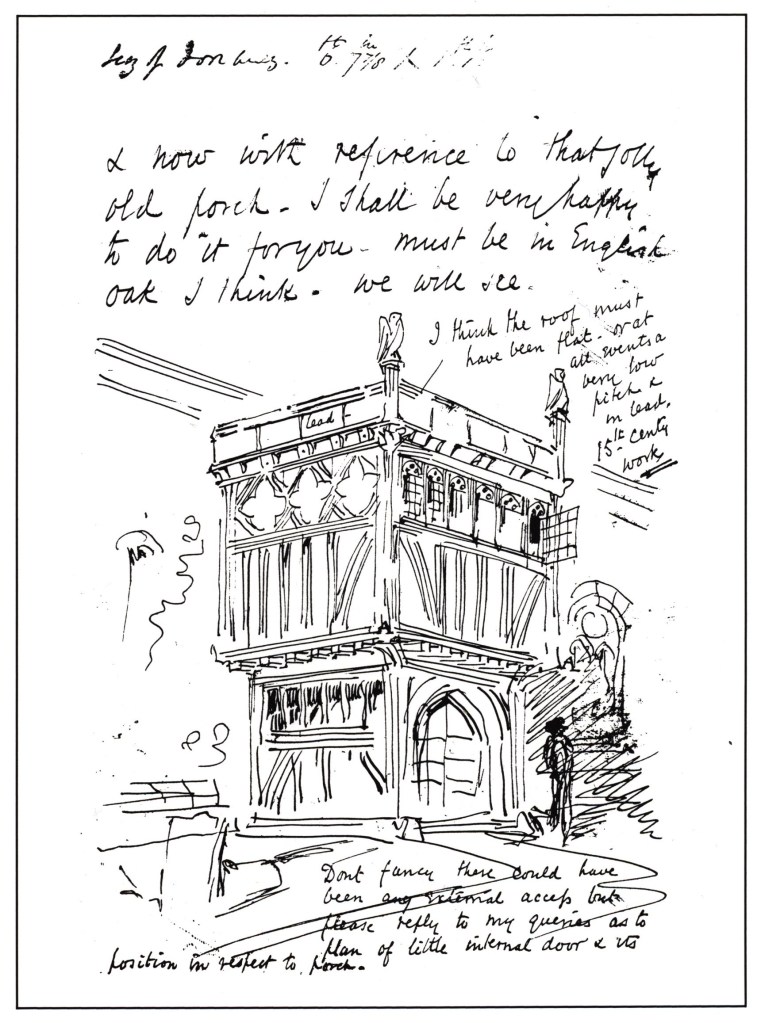 & now with reference to that jolly
old porch - I shall be very happy
to do it for you - must be in English
oak I think - we will see.
I think the roof must
have been flat - or at
all events a
very low
pitch &
in lead.
15th centy
work
lead
Dont fancy there could have
been any external access but
please reply to my queries as to
plan of little internal door & its
position in respect to porch.